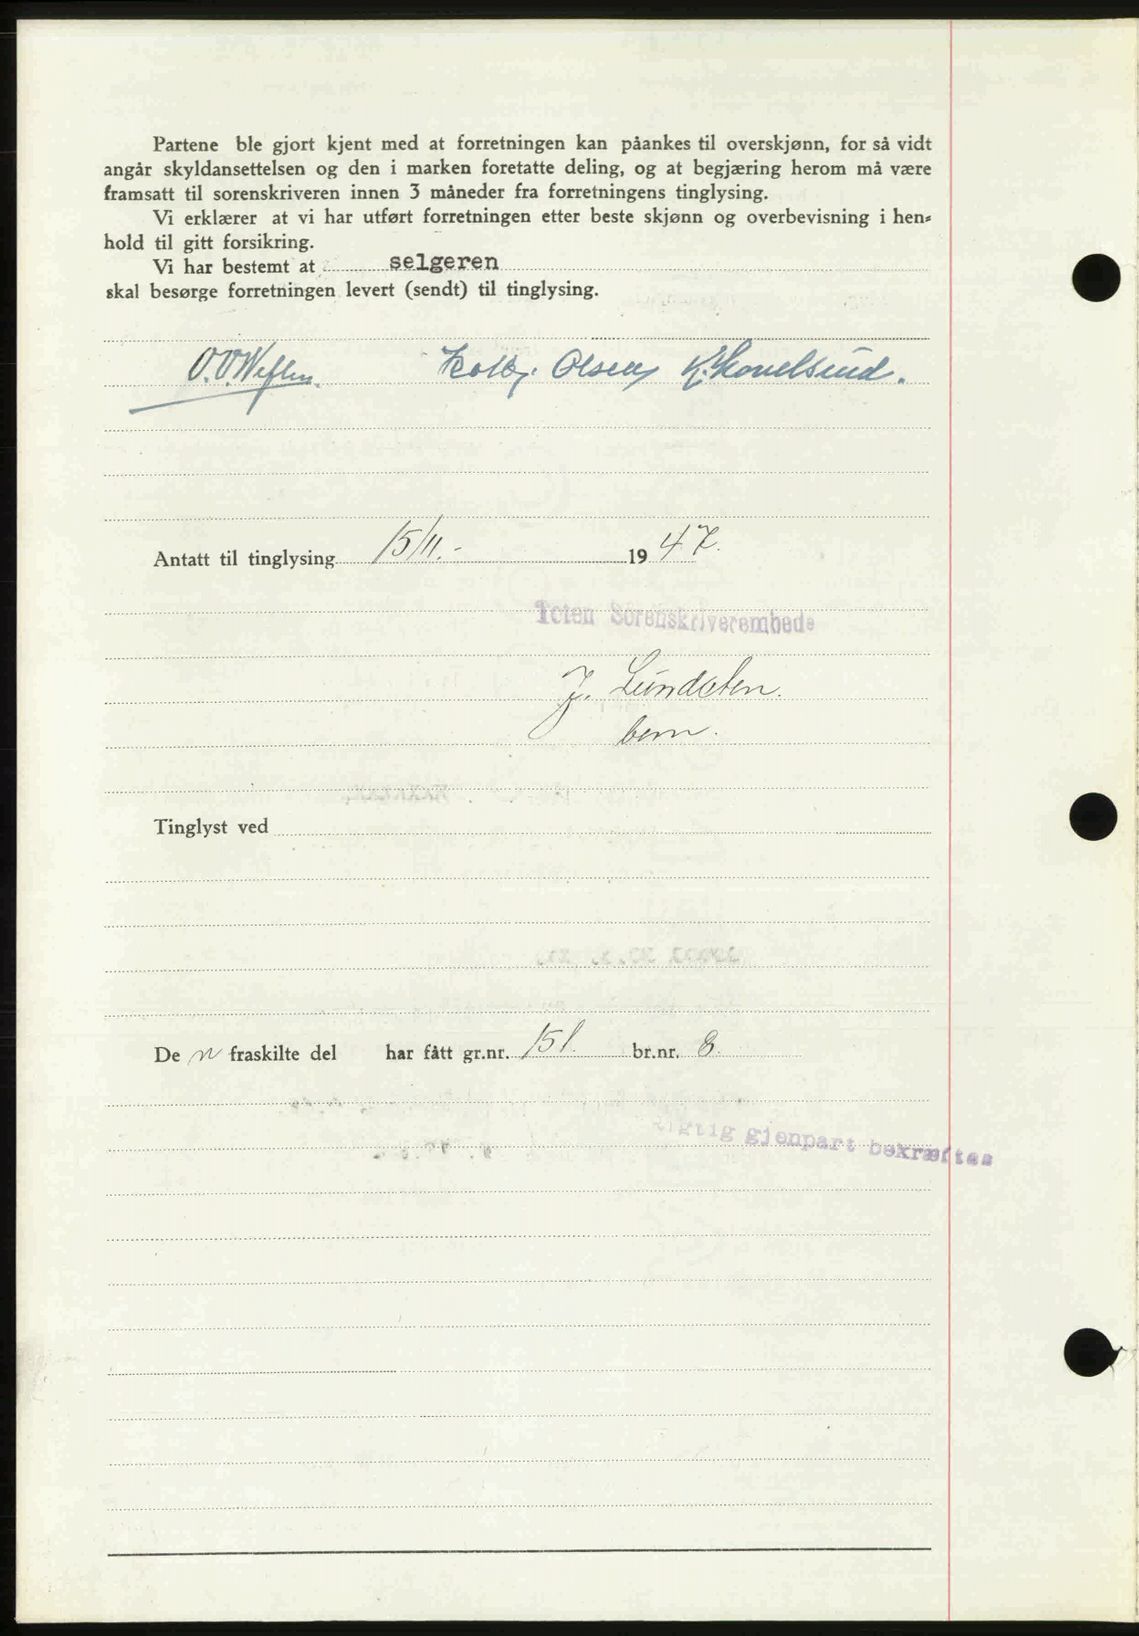 Partene ble gjort kjent med at forretningen kan påankes til overskjønn, for så vidt
angår skyldansettelsen og den i marken foretatte deling, og at begjæring herom må være
framsatt til sorenskriveren innen 3 måneder fra forretningens tinglysing.
Vi erklærer at vi har utført forretningen etter beste skjønn og overbevisning i hen-
hold til gitt forsikring.
Vi har bestemt at selgeren
skal besørge forretningen levert (sendt) til tinglysing.
O.V. Weflen. Kolb. Olsen
Antatt til tinglysing 15/11.- 1947.
Toten Sorenskriverembede
J. Lundsten.
bem.
Tinglyst ved
De n fraskilte del har fått gr.nr. 151. br.nr. 8.
gjenpart bekræftes